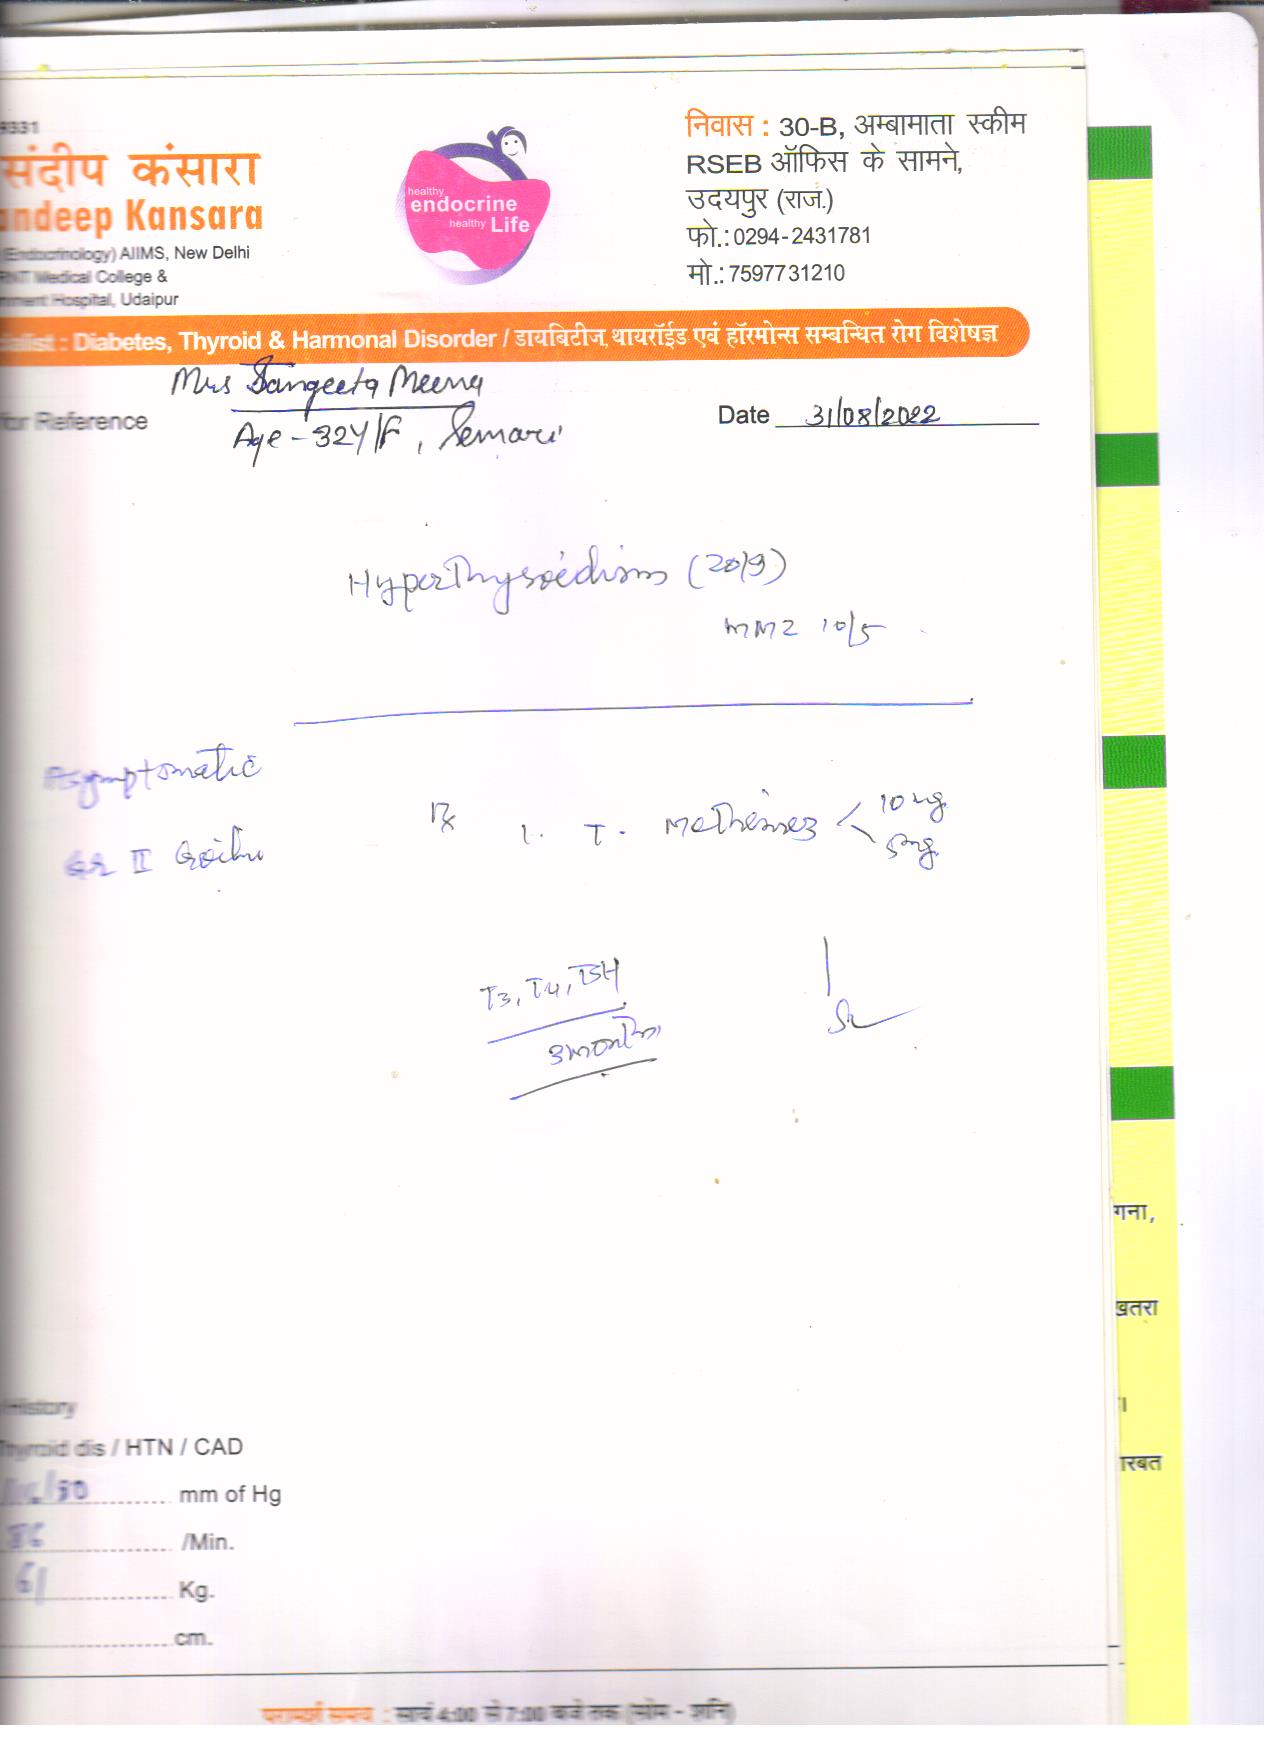 9331
संदीप कंसारा
andeep Kansara
(Endocrinology) AIIMS, New Delhi
RNT Medical College &
nment Hospital, Udaipur
healthy
endocrine
healthy Life
निवास : 30-B, अम्बामाता स्कीम
RSEB ऑफिस के सामने,
उदयपुर (राज.)
फो.: 0294-2431781
मो.: 7597731210
ialist : Diabetes, Thyroid & Harmonal Disorder / डायबिटीज, थायरॉईड एवं हॉरमोन्स सम्बन्धित रोग विशेषज्ञ
Mrs Sangeeta Meena
for Reference
Age - 32Y/F, Semari
Date 31/08/2022
Hyperthyroidism (2019)
MMZ 10/5
Asymptomatic
Gr II Goitre
Rx 1. T. Methimez < 10 mg
5mg
T3, T4, TSH
3 months
History
Thyroid dis / HTN / CAD
mm of Hg
/Min.
61 Kg.
cm.
परामर्श समय : सायं 4:00 से 7:00 बजे तक (सोम - शनि)
गना,
खतरा
रबत